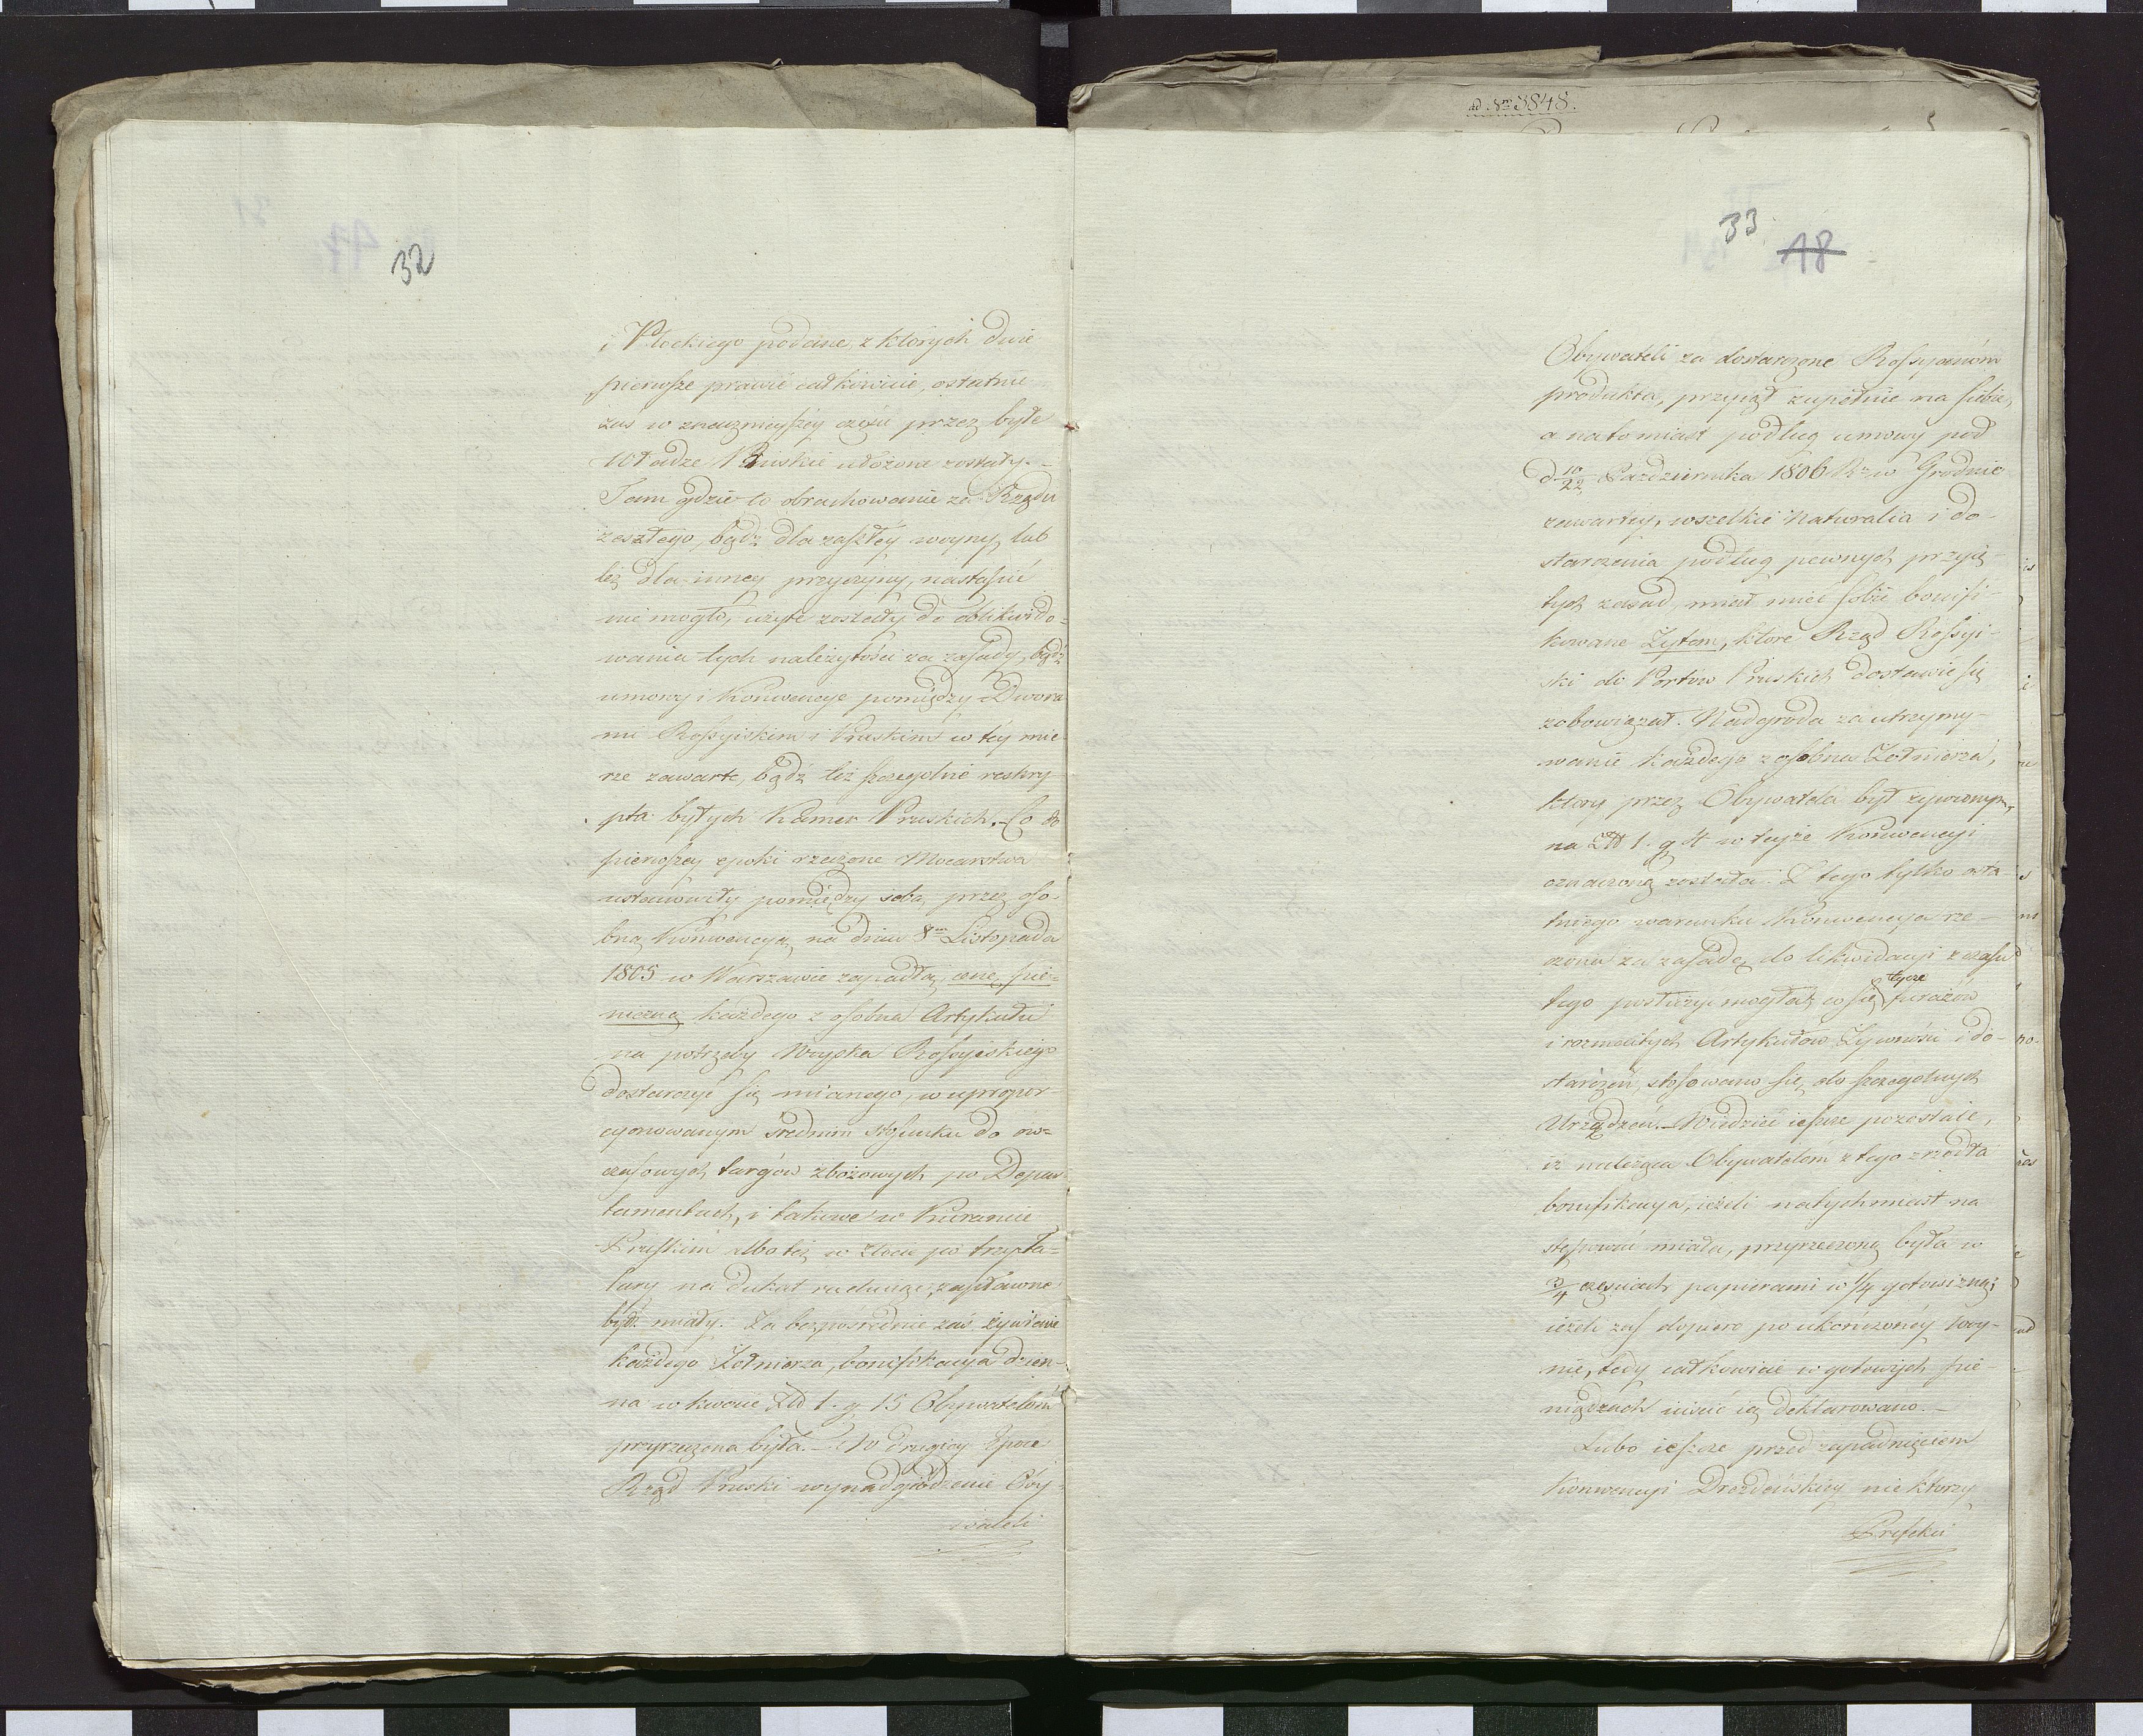 32
i Płockiego podane z których dwie
pierwsze prawie całkowicie, ostatnie
zaś w znacznieyszey części przez byłe
Władze Pruskie ułożone zostały. –
Tam gdzie to obrachowanie za Rządu
zeszłego, bądź dla zaszłey woyny lub
też dla inney przyczyny, nastąpić
nie mogło, użyte zostały do oblikwido=
wania tych należytości za zasady, bądź
umowy i Konwencye pomiędzy Dwora
mi Rossyiskim i Pruskim w tey mie
rze zawarte, bądź też szczegolnie reskry
pta byłych Kamer Pruskich. – Co do
pierwszey epoki rzeczone Mocarstwa
ustanowiły pomiędzy sobą przez oso-
bną Konwencyą na dniu 8m Listopada
1805 w Warszawie zapadłą, cenę pie-
niężną każdego z osobna Artykułu
na potrzeby Woyska Rossyiskiego
dostarczyć się mianego, w upropor-
cyonowanym średnim stosunku do ow=
czasowych targów zbożowych po Depar-
tamentach, i takowe w Kurancie
Pruskim albo też w złocie po trzy ta=
lary na dukat rachuiąc, zapłacone
bydź miały. Za bezpośrednie zaś żywienie
każdego Żołnierza, bonifikacya dzien-
na w kwocie Zł 1. g 15 Obywatelom
przyrzeczona była. – W drugiey Epoce
Rząd Pruski wynadgrodzenie Oby-
wateli
ad Nm 3848.
33
18
Obywateli za dostarczone Rossyanom
produkta, przyiął zupełnie na siebie,
a natomiast podług umowy pod
d 10/22 Października 1806 R. w Grodnie
zawartey, wszelkie Naturalia i do-
starczenia podług pewnych przyię-
tych zasad, miał mieć sobie bonifi-
kowane Żytem, które Rząd Rossyi-
ski do Portów Pruskich dostawić się
zobowiązał. Nadgroda za utrzymy-
wanie każdego z osobna Żołnierza,
który przez Obywatela był żywionym,
na Zł 1. g 4 w teyże Konwencyi
oznaczoną została. Z tego tylko osta-
tniego warunku Konwencya rze-
czona za zasadę do likwidacyi z czasu
tego posłużyć mogła; co się tycze furażów
i rozmaitych Artykułów Żywności i do-
starczeń, stosowano się do szczegolnych
Urządzeń. – Wiedzieć ieszcze pozostaie,
iż należąca Obywatelom z tego zrzodła
bonifikacya, ieżeli natychmiast na
stępować miała, przyrzeczoną była w
3/4 częściach papierami w 1/4 gotowizną;
ieżeli zaś dopiero po ukończoney woy-
nie, tedy całkowicie w gotowych pie-
niądzach iiścić ią deklarowano. –
Lubo ieszcze przed zapadnięciem
Konwencyi Drezdeńskiey niektorzy
Prefekci